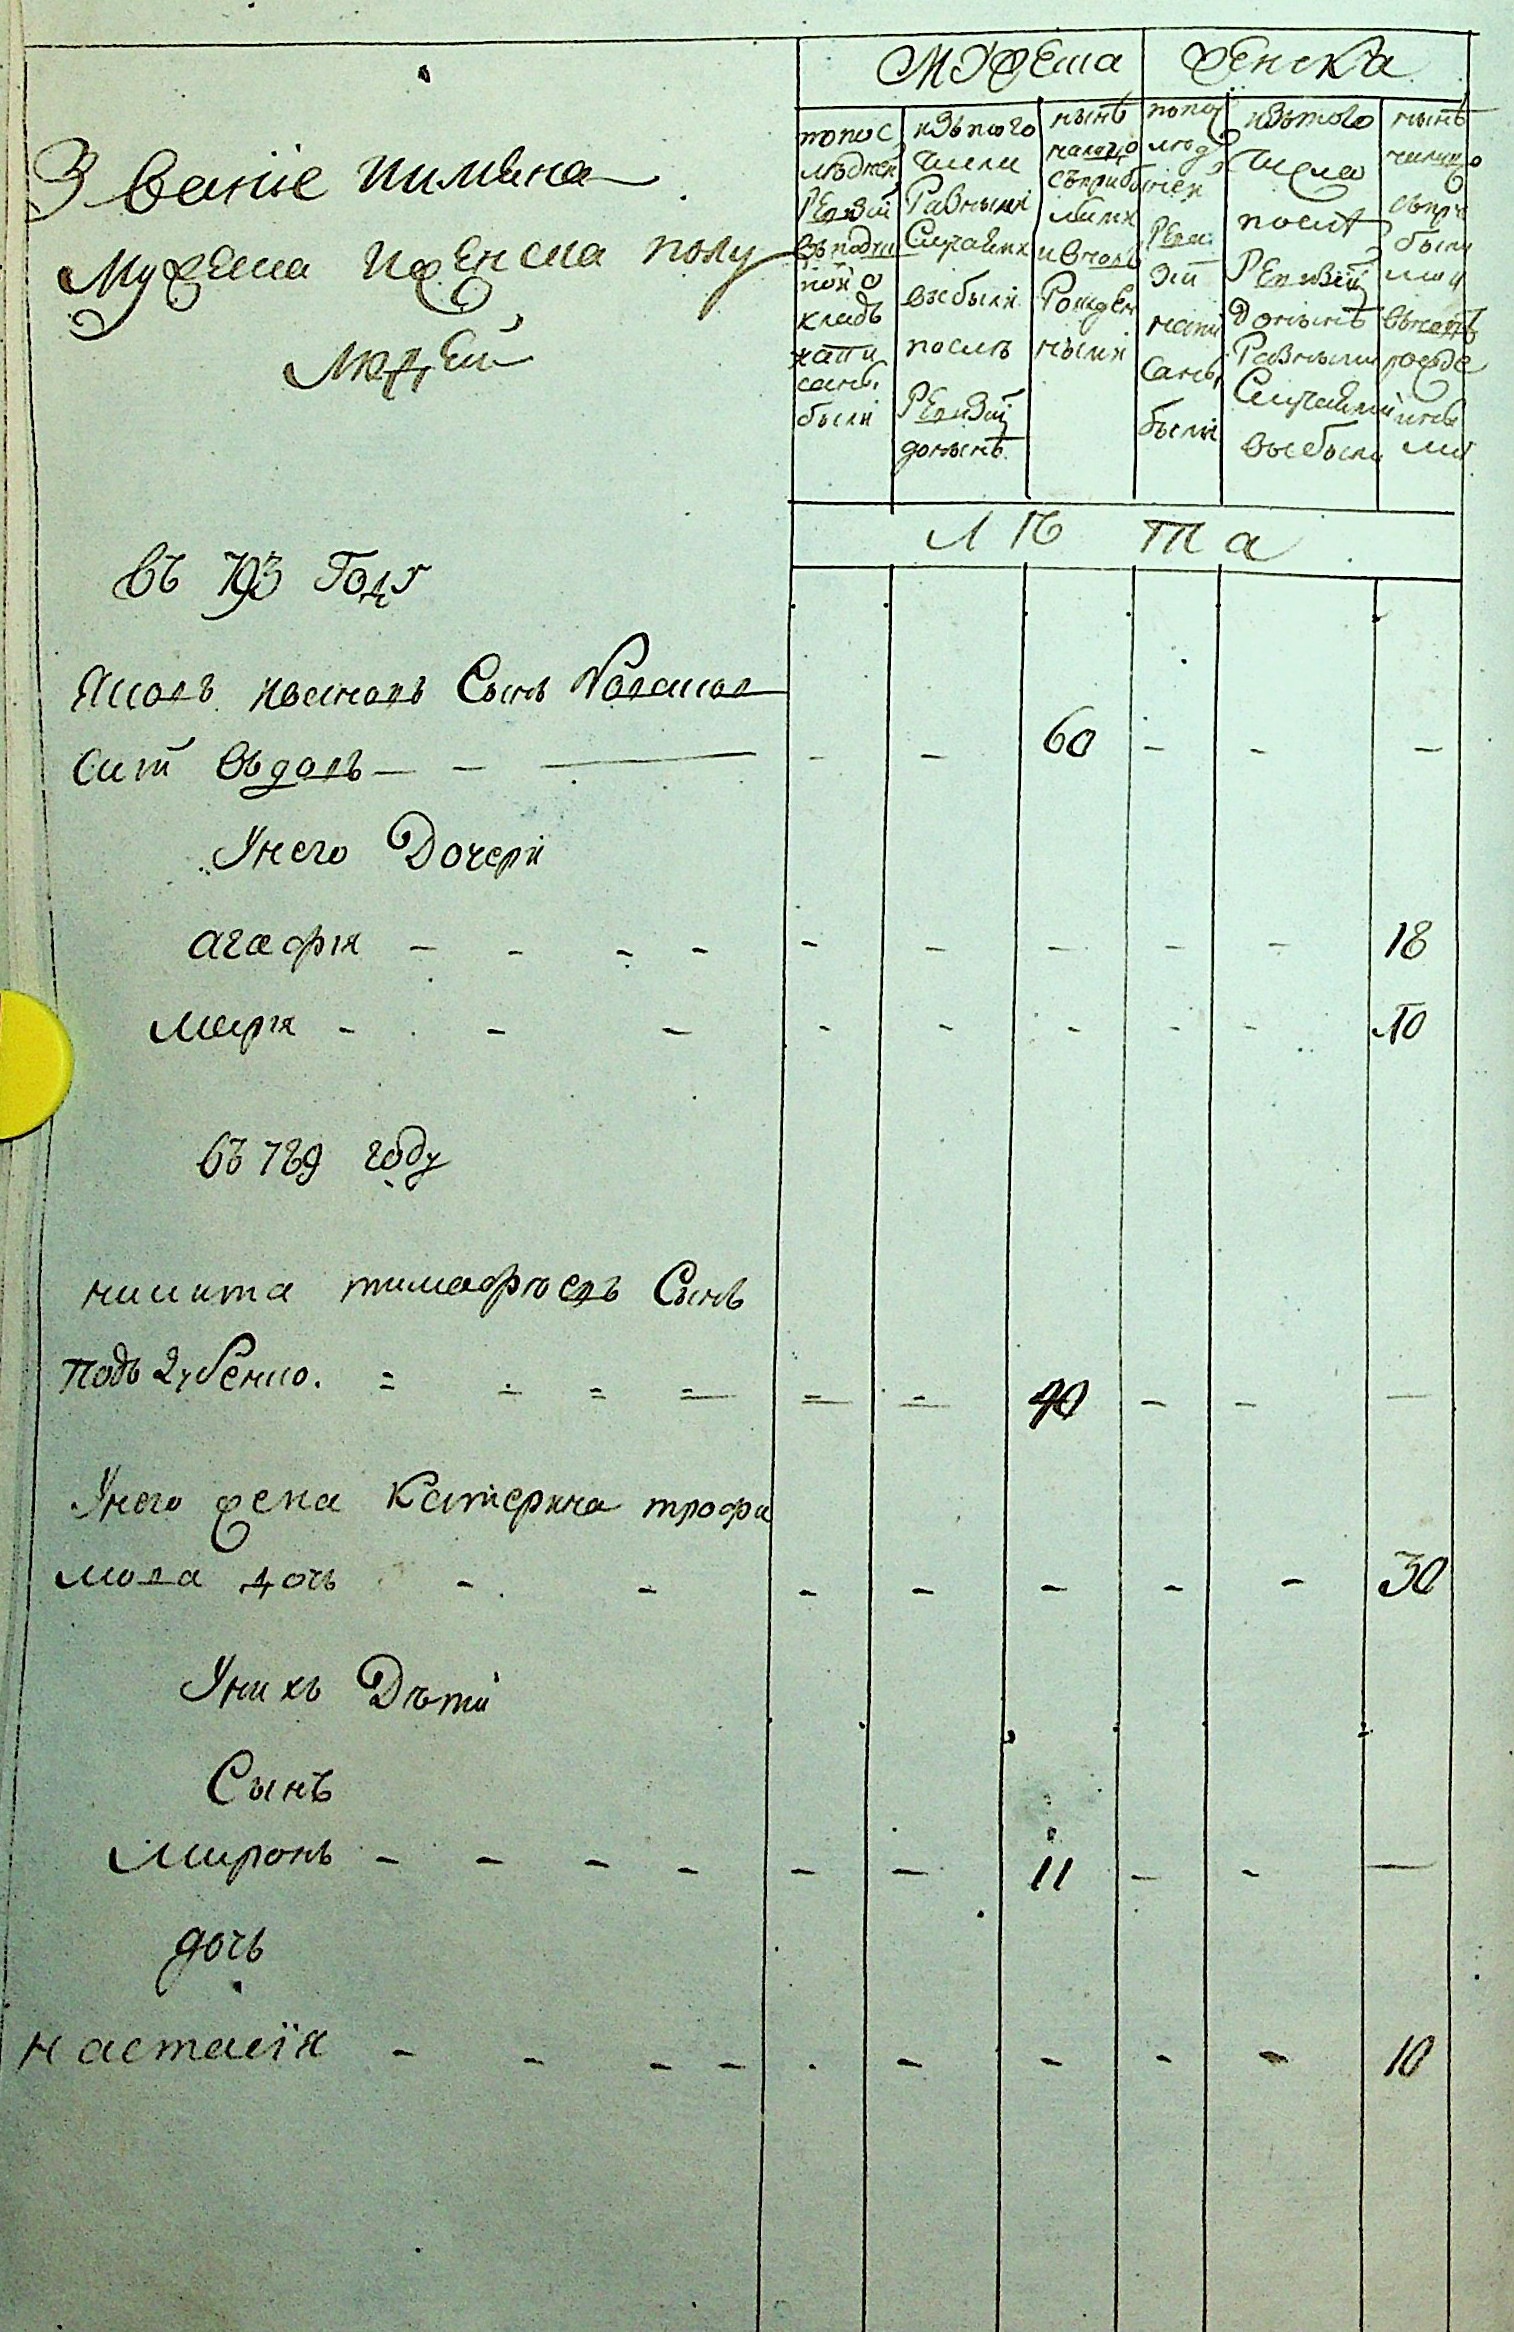 Мужеска женска
Звание имяна
Мужеска иженска полу
людей
попос людней Ревизiи въ подушной окладъ написаны были
изътого числа Разными Случаями выбыли послѣ Ревизiи донынѣ
нынѣ налицо съприбылыми ивновь Рожденными
попос людней Ревизiи написаны были
изътого числа послѣ Ревизiи донынѣ Разными Случаями выбыли
нынѣ налицо съприбылыми вновь рожденными
Лѣта
въ 793 Году
Яковъ Сынъ
вдовъ — — — - - 60 - - -
Унего Дочери
агафiя - - - - - - - - - 18
марiя - - - - - - - - 10
въ 789 году
никита тимафѣевъ Сынъ
Подъ = = = = = - 40 - - -
Унего жена Катерина трофи
мова дочь - - - - - - - 30
Унихъ Дѣти
Сынъ
миронъ - - - - - - 11 - - -
дочь
настасiя - - - - - - - - - 10